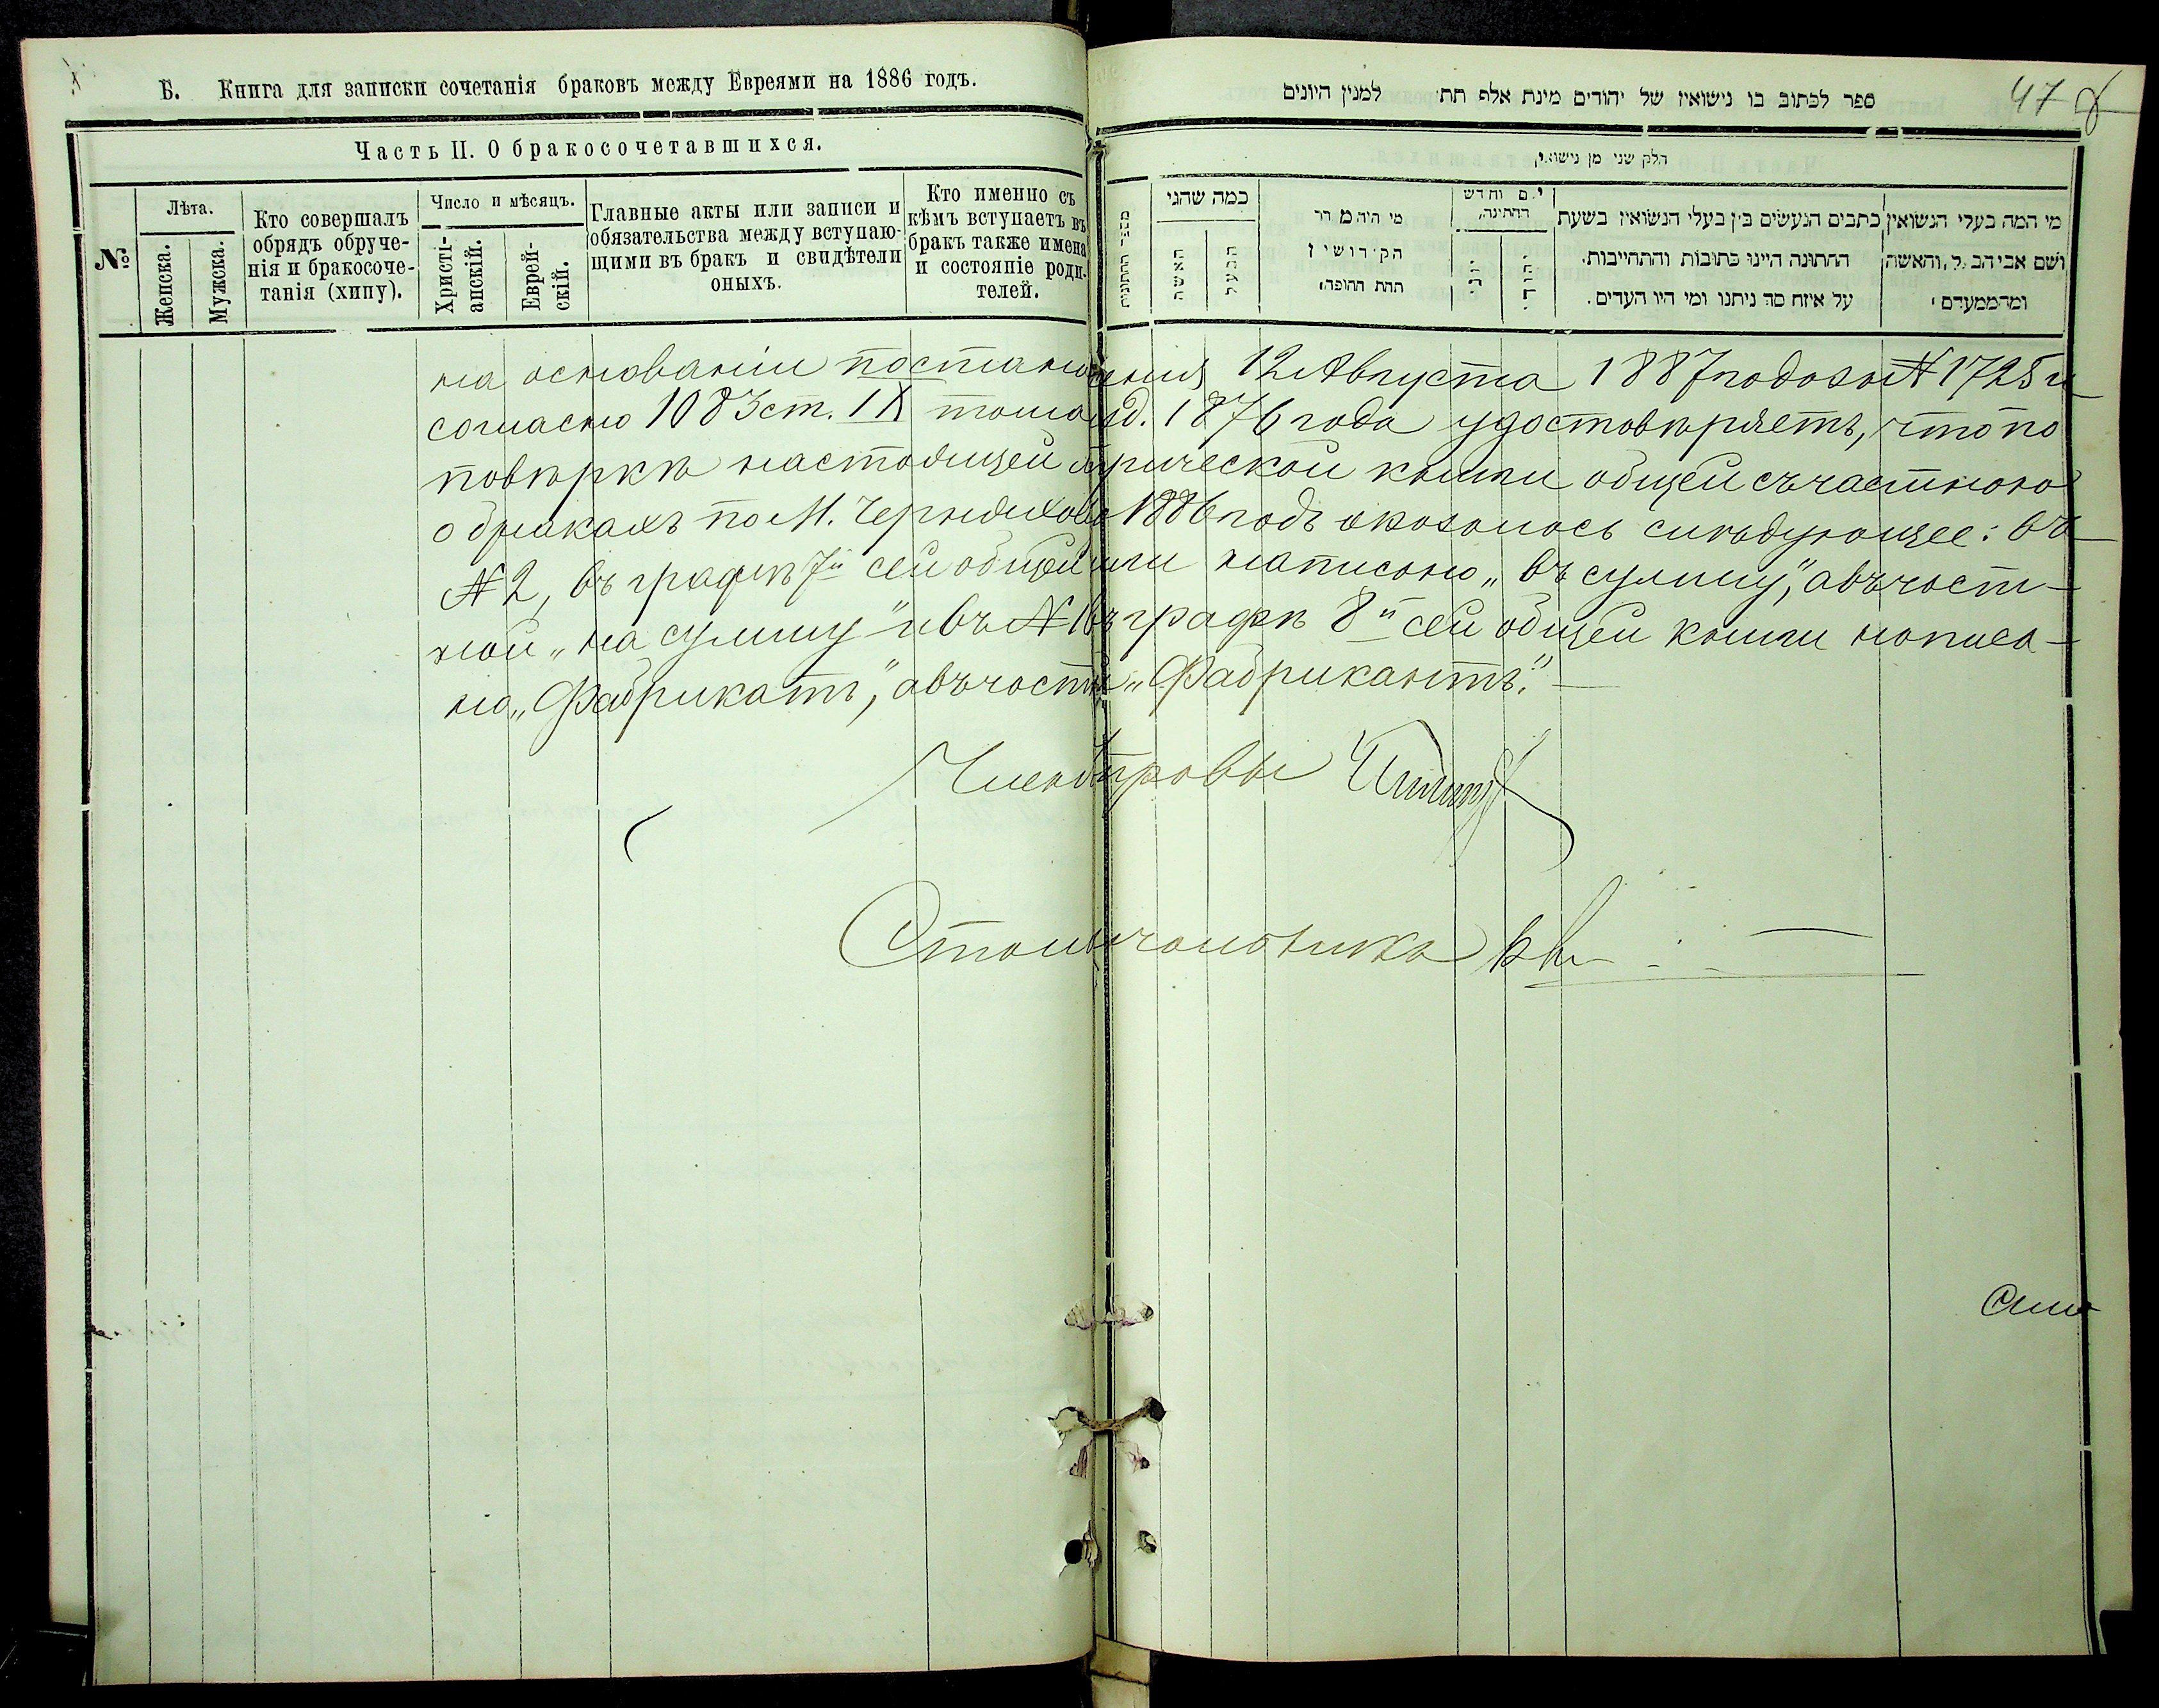 Б. Книга для записки сочетанія браковъ между Евреями на 1886 годъ.
Часть II. О бракосочетавшихся.
№
Лѣта.
Женска.
Мужска.
Кто совершалъ
обрядъ обруче-
нія и бракосоче-
танія (хипу).
Число и мѣсяцъ.
Христі-
анскій.
Еврей-
скій.
Главные акты или записи и
обязательства между вступаю-
щими въ бракъ и свидѣтели
оныхъ.
Кто именно съ
кѣмъ вступаетъ въ
бракъ также имена
и состояніе роди-
телей.
ספר לכתוב בו נישואין של יהודים מינת אלף תת׳ למנין היונים
47
חלק שני מן נישואין
מי המה בעלי הנשואין
ומהממעדם
כתבים הנעשים בין בעלי הנשואין בשעת
החתונה היינו כתובות והתחייבות.
על איזח סך ניתנו ומי היו העדים.
תחת החופה
כמה שהני
האשה
הבעל
на основаніи постановленія 12 Августа 1887 года за № 1725 и
согласно 1083 ст. IX тома изд. 1876 года удостовѣряетъ, что по
повѣркѣ настоящей метрической книги общей съ частною
о бракахъ по М. Черняхову 1886 годъ оказалось слѣдующее: въ
№ 2, въ графѣ 7й сей общей книги написано „въ сумму“, а въ част-
ной „на сумму“ и въ № 16 въ графѣ 8й сей общей книги написа-
но „Фабрикатъ“, а въ частной „Фабрикантъ“. —
Членъ Управы
Столоначальника